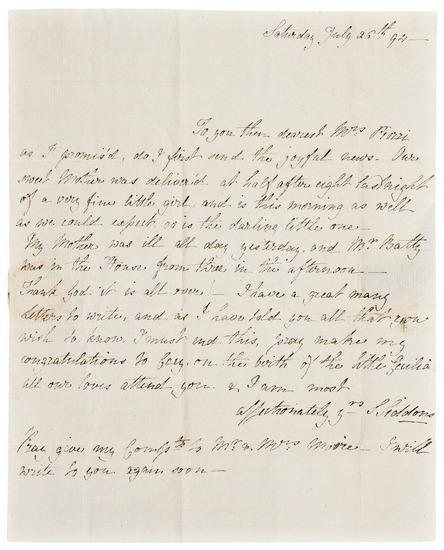 Saturday July 26th 94—
To you then dearest Mrs Piozzi
as I promis'd, do I first send the joyful news— Our
sweet Mother was deliver'd at half after eight last night
of a very fine little girl and is this morning as well
as we could expect so is the darling little one—
My Mother was ill all day yesterday and Mr Batty
was in the House from three in the afternoon—
Thank God it is all over!— I have a great many
Letters to write, and as I have told you all that you
wish to know I must end this, pray make my
congratulations to Cecy. on the birth of the little Cecilia
all our loves attend you. & I am most
affectionately yrs S Siddons
Pray give my Compts to Mr & Mrs Moore— I will
write to you again soon—